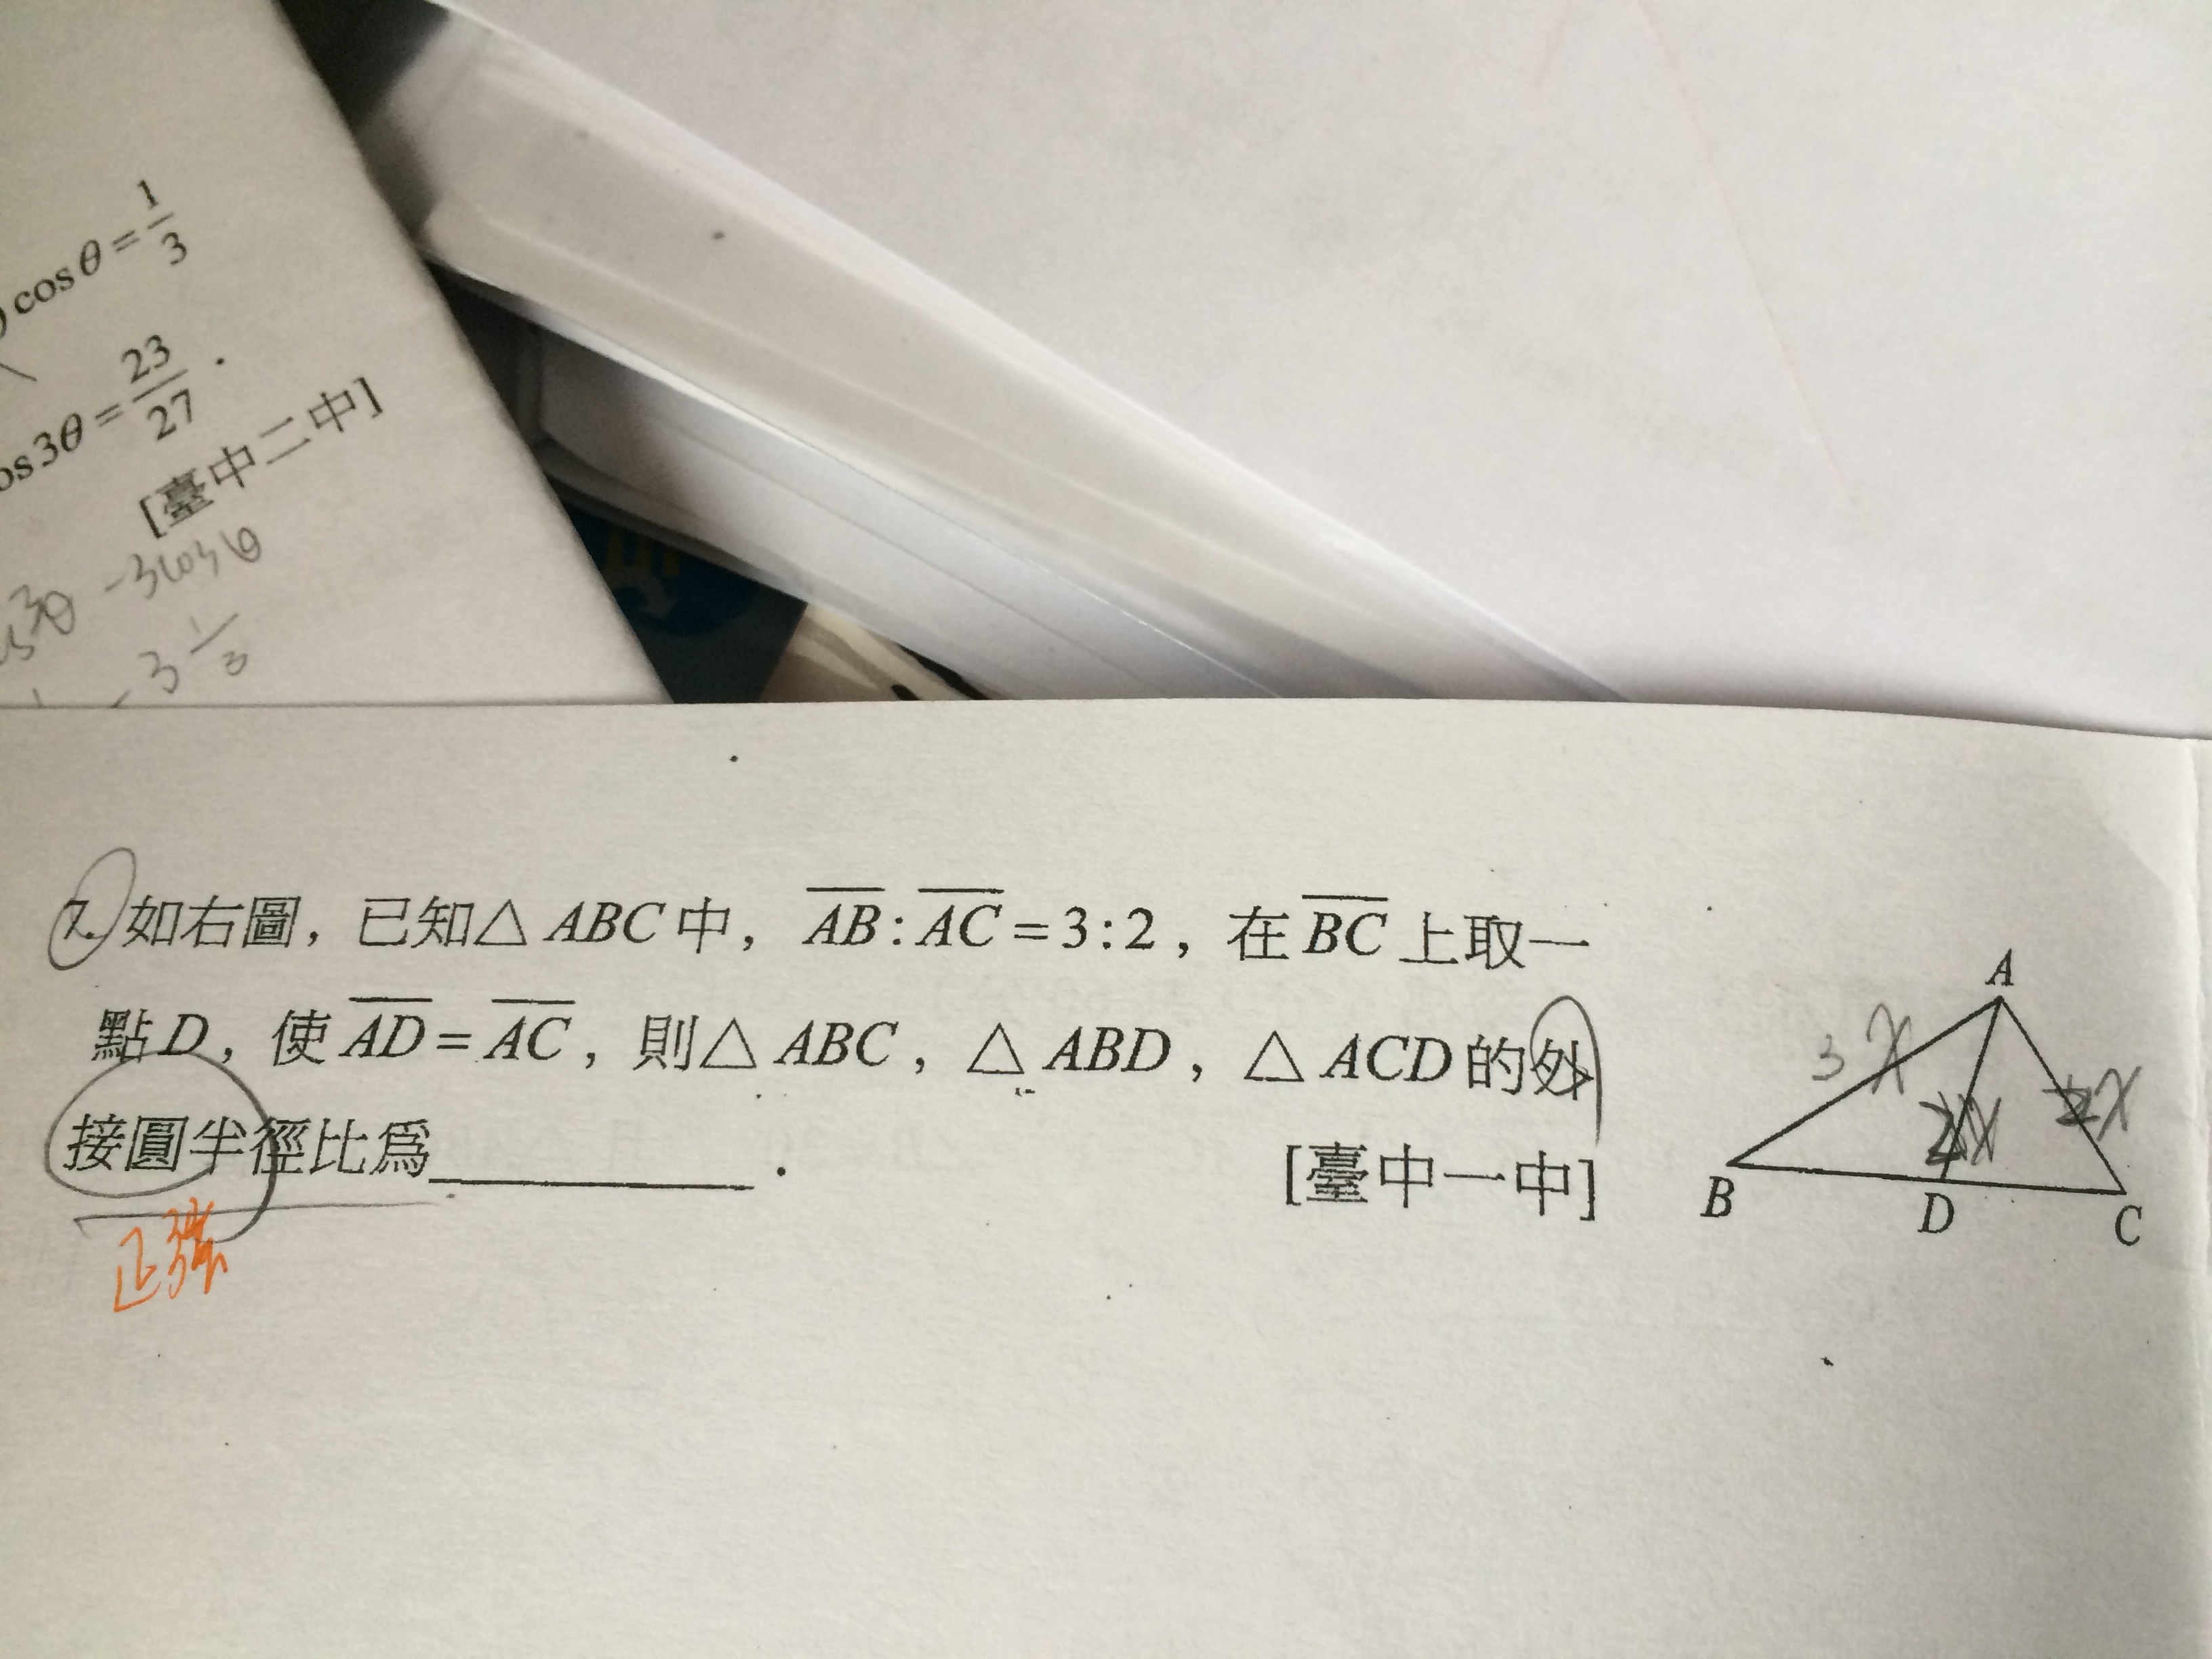 cosθ=1/3
os3θ=23/27.
[臺中二中]
3θ -3cosθ
-3 1/3
7. 如右圖，已知△ABC中，AB:AC=3:2，在BC上取一
點D，使AD=AC，則△ABC，△ABD，△ACD的外
接圓半徑比爲__________.
[臺中一中]
正弦
A
3x
2x
2x
B
D
C